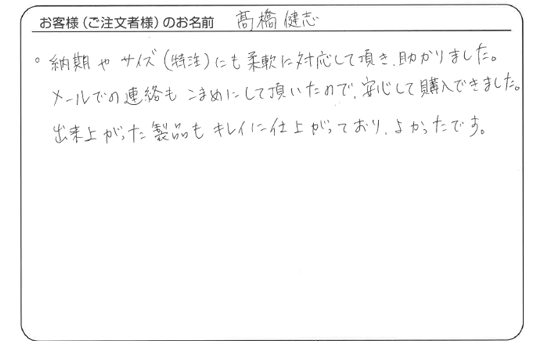 お客様（ご注文者様）のお名前 髙橋健志
。納期やサイズ（特注）にも柔軟に対応して頂き、助かりました。
メールでの連絡もこまめにして頂いたので、安心して購入できました。
出来上がった製品もキレイに仕上がっており、よかったです。